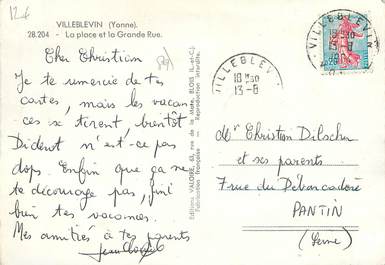 12 f
VILLEBLEVIN (Yonne).
28.204 - La place et la Grande Rue.
Cher Christian
Je te remercie de tes
cartes, mais les vacan-
ces se tirent, bientôt
Diderot n'est-ce pas
dops. Enfin que ça ne
te décourage pas, finit
bien tes vacances.
Mes amitiés à tes parents
Editions VALOIRE, 63, rue de la Maire, BLOIS (L.-et-C.)
Fabrication française - Reproduction interdite.
VILLEBLEVIN
18H30
13-8
VILLEBLEVIN
18H30
13-8
Mr Christian Dilscher
et ses parents
7 rue du Débarcadère
PANTIN
(Seine)